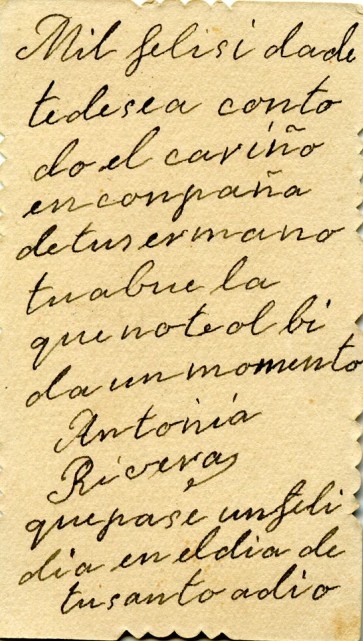 Mil felisi dade
tedesea conto
do el cariño
en conpaña
detus ermano
tuabue la
que note ol bi
da un momento
Antonia
Rivera
que pase un feli
dia en el dia de
tu santo adio